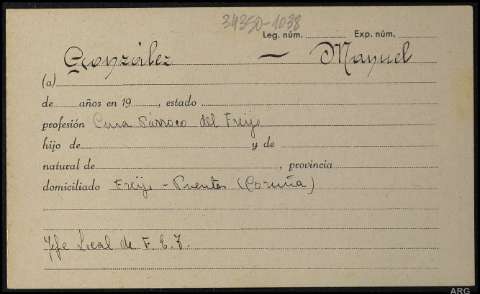 34350-1038
Leg. núm. Exp. núm.
González — Manuel
(a)
de años en 19 , estado
profesión Cura Parroco del Freijo
hijo de y de
natural de , provincia
domiciliado Freijo - Puentes (Coruña)
Jefe Local de F. E. T.
ARG